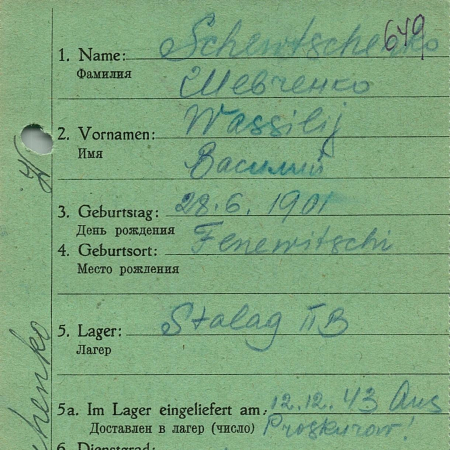 649
1. Name: Schewtschenko
Фамилия Шевченко
2. Vornamen: Wassilij
Имя Василий
3. Geburtstag: 28.6.1901
День рождения
4. Geburtsort: Fenewitschi
Место рождения
5. Lager: Stalag II B
Лагер
5a. Im Lager eingeliefert am: 12.12.43 Aus
Доставлен в лагер (число) Proskurow!
6. Dienstgrad:
henko